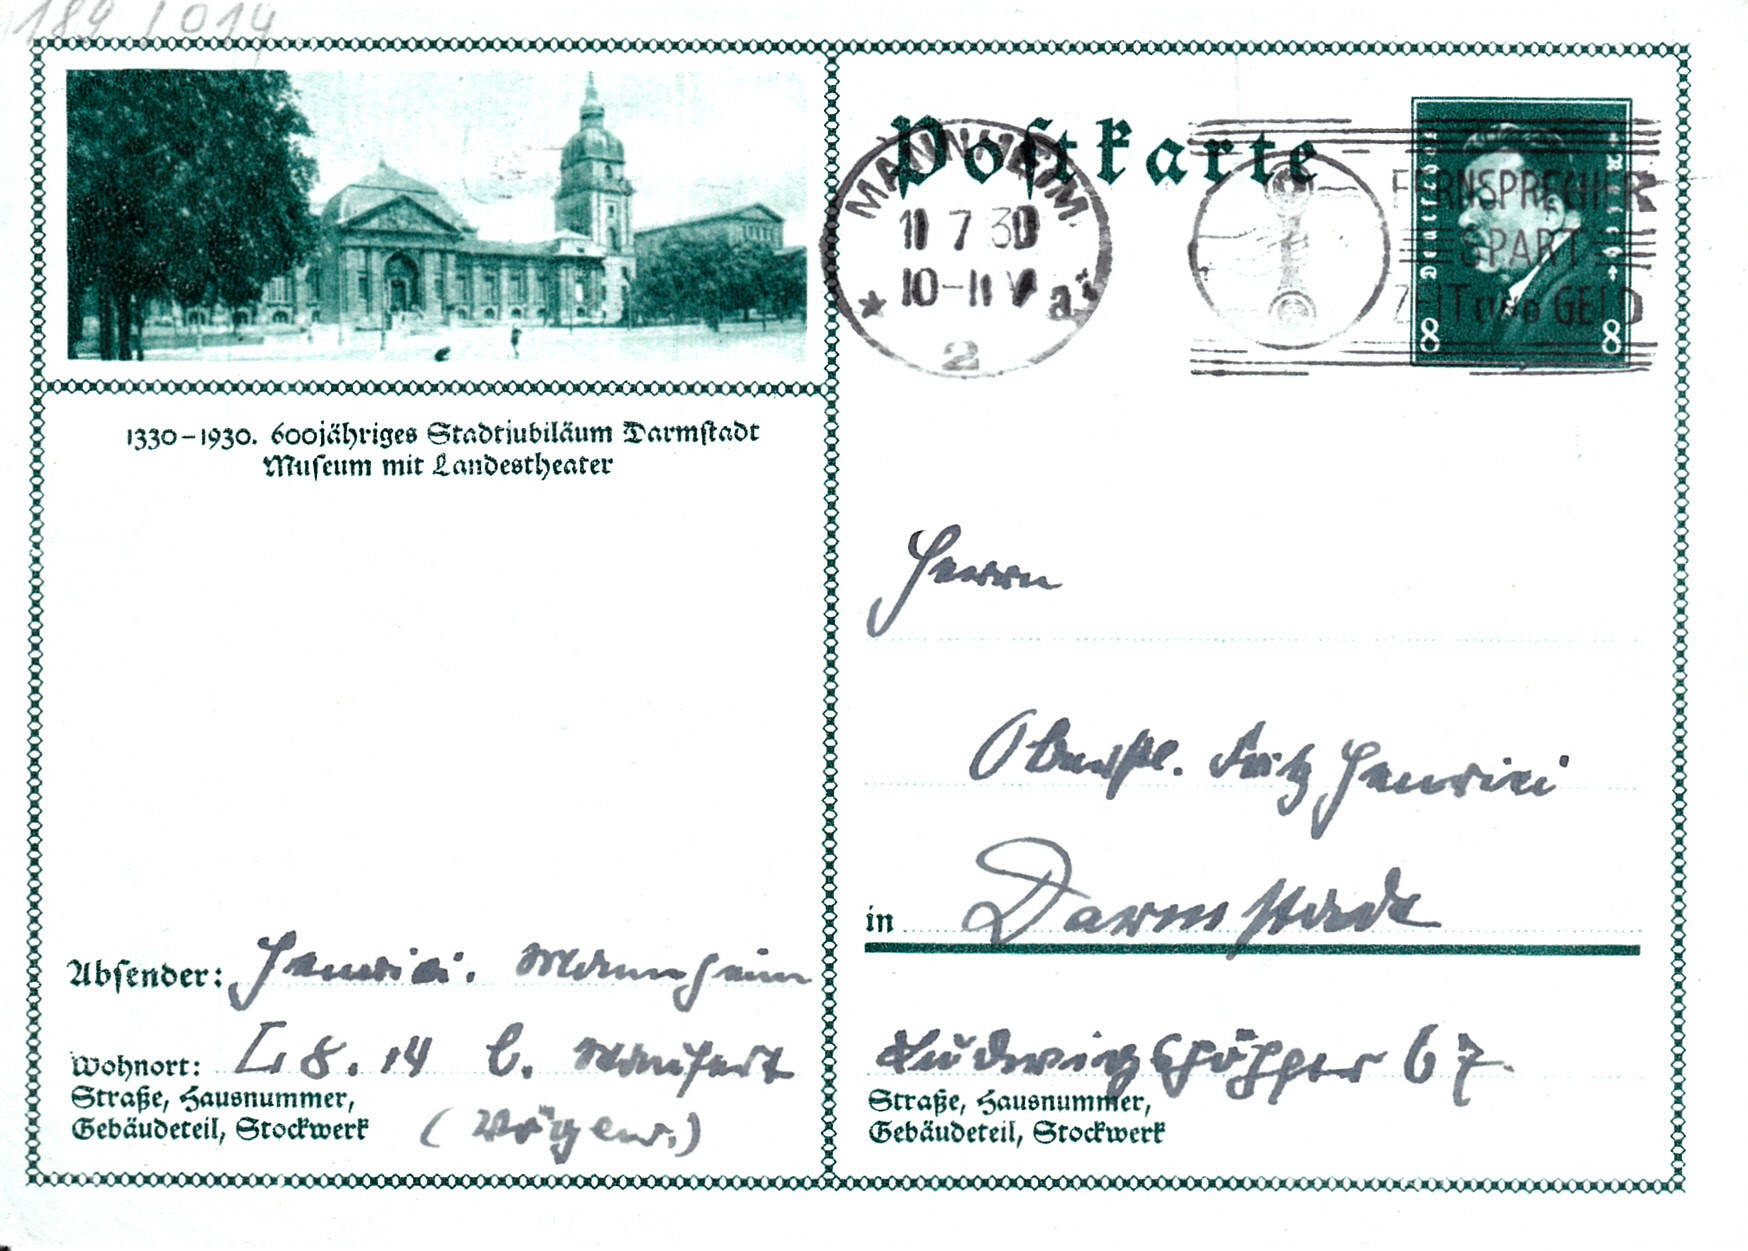 189 / 014
1330–1930. 600jähriges Stadtjubiläum Darmstadt
Museum mit Landestheater
Absender: Henrici. Mannheim
Wohnort: L 8. 14 b.
Straße, Hausnummer,
Gebäudeteil, Stockwerk
Postkarte
MANNHEIM
11 7 30
10–11 V
* 2 a
FERNSPRECHER
SPART
ZEIT UND GELD
Deutsches Reich
8 8
Herrn
Fritz Henrici
in Darmstadt
67
Straße, Hausnummer,
Gebäudeteil, Stockwerk